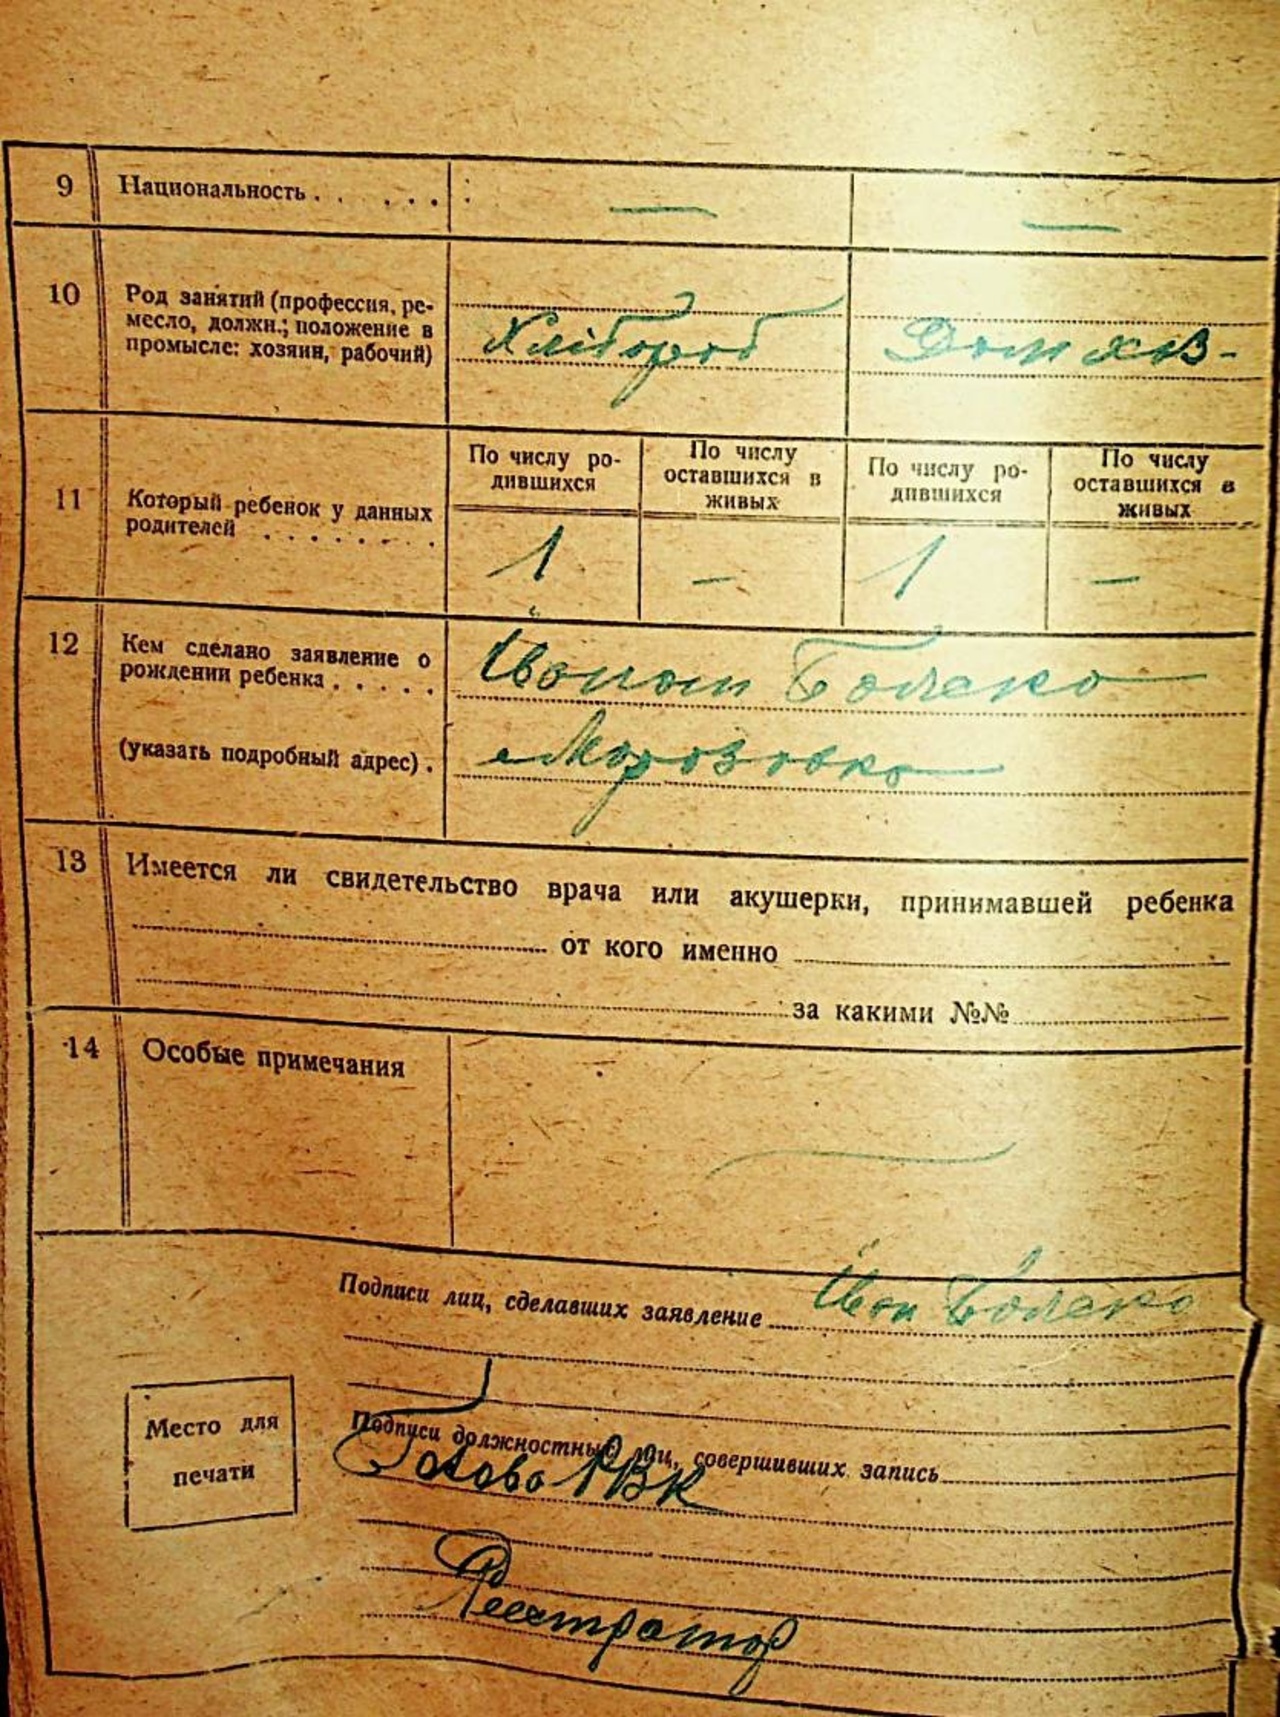 9 Национальность . . . . . . : — —
10 Род занятий (профессия, ре-
месло, должн.; положение в
промысле: хозяин, рабочий)
Хлібороб Дом хоз-
11 Который ребенок у данных
родителей . . . . . . . .
По числу ро-
дившихся
По числу
оставшихся в
живых
По числу ро-
дившихся
По числу
оставшихся в
живых
1 — 1 —
12 Кем сделано заявление о
рождении ребенка . . . . .
(указать подробный адрес) .
Іваном
Морозовка
13 Имеется ли свидетельство врача или акушерки, принимавшей ребенка
от кого именно
за какими №№
14 Особые примечания
Подписи лиц, сделавших заявление Іван
Подписи должностных лиц, совершивших запись
Голова РВК
Реєстратор
Место для
печати